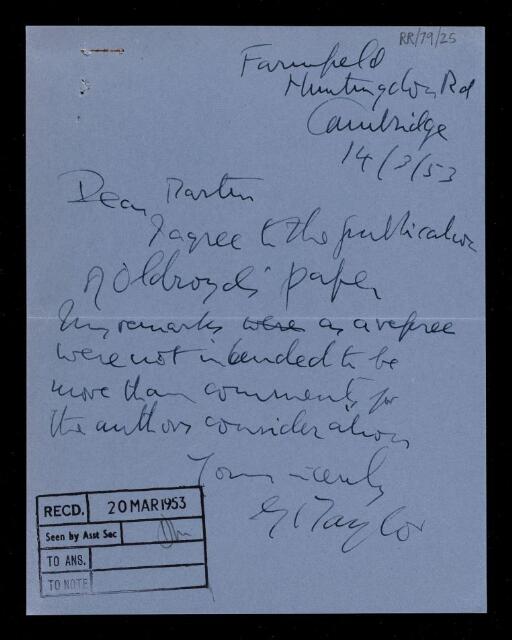 RR/79/25
Farmfield
Huntingdon Rd
Cambridge
14/3/53
Dear Martin
I agree to the publication
of Oldroyd's paper
My remarks were as a referee
were not intended to be
more than comments for
the authors consideration
Yours sincerely
G I Taylor
RECD. 20 MAR 1953
Seen by Asst Sec
TO ANS.
TO NOTE